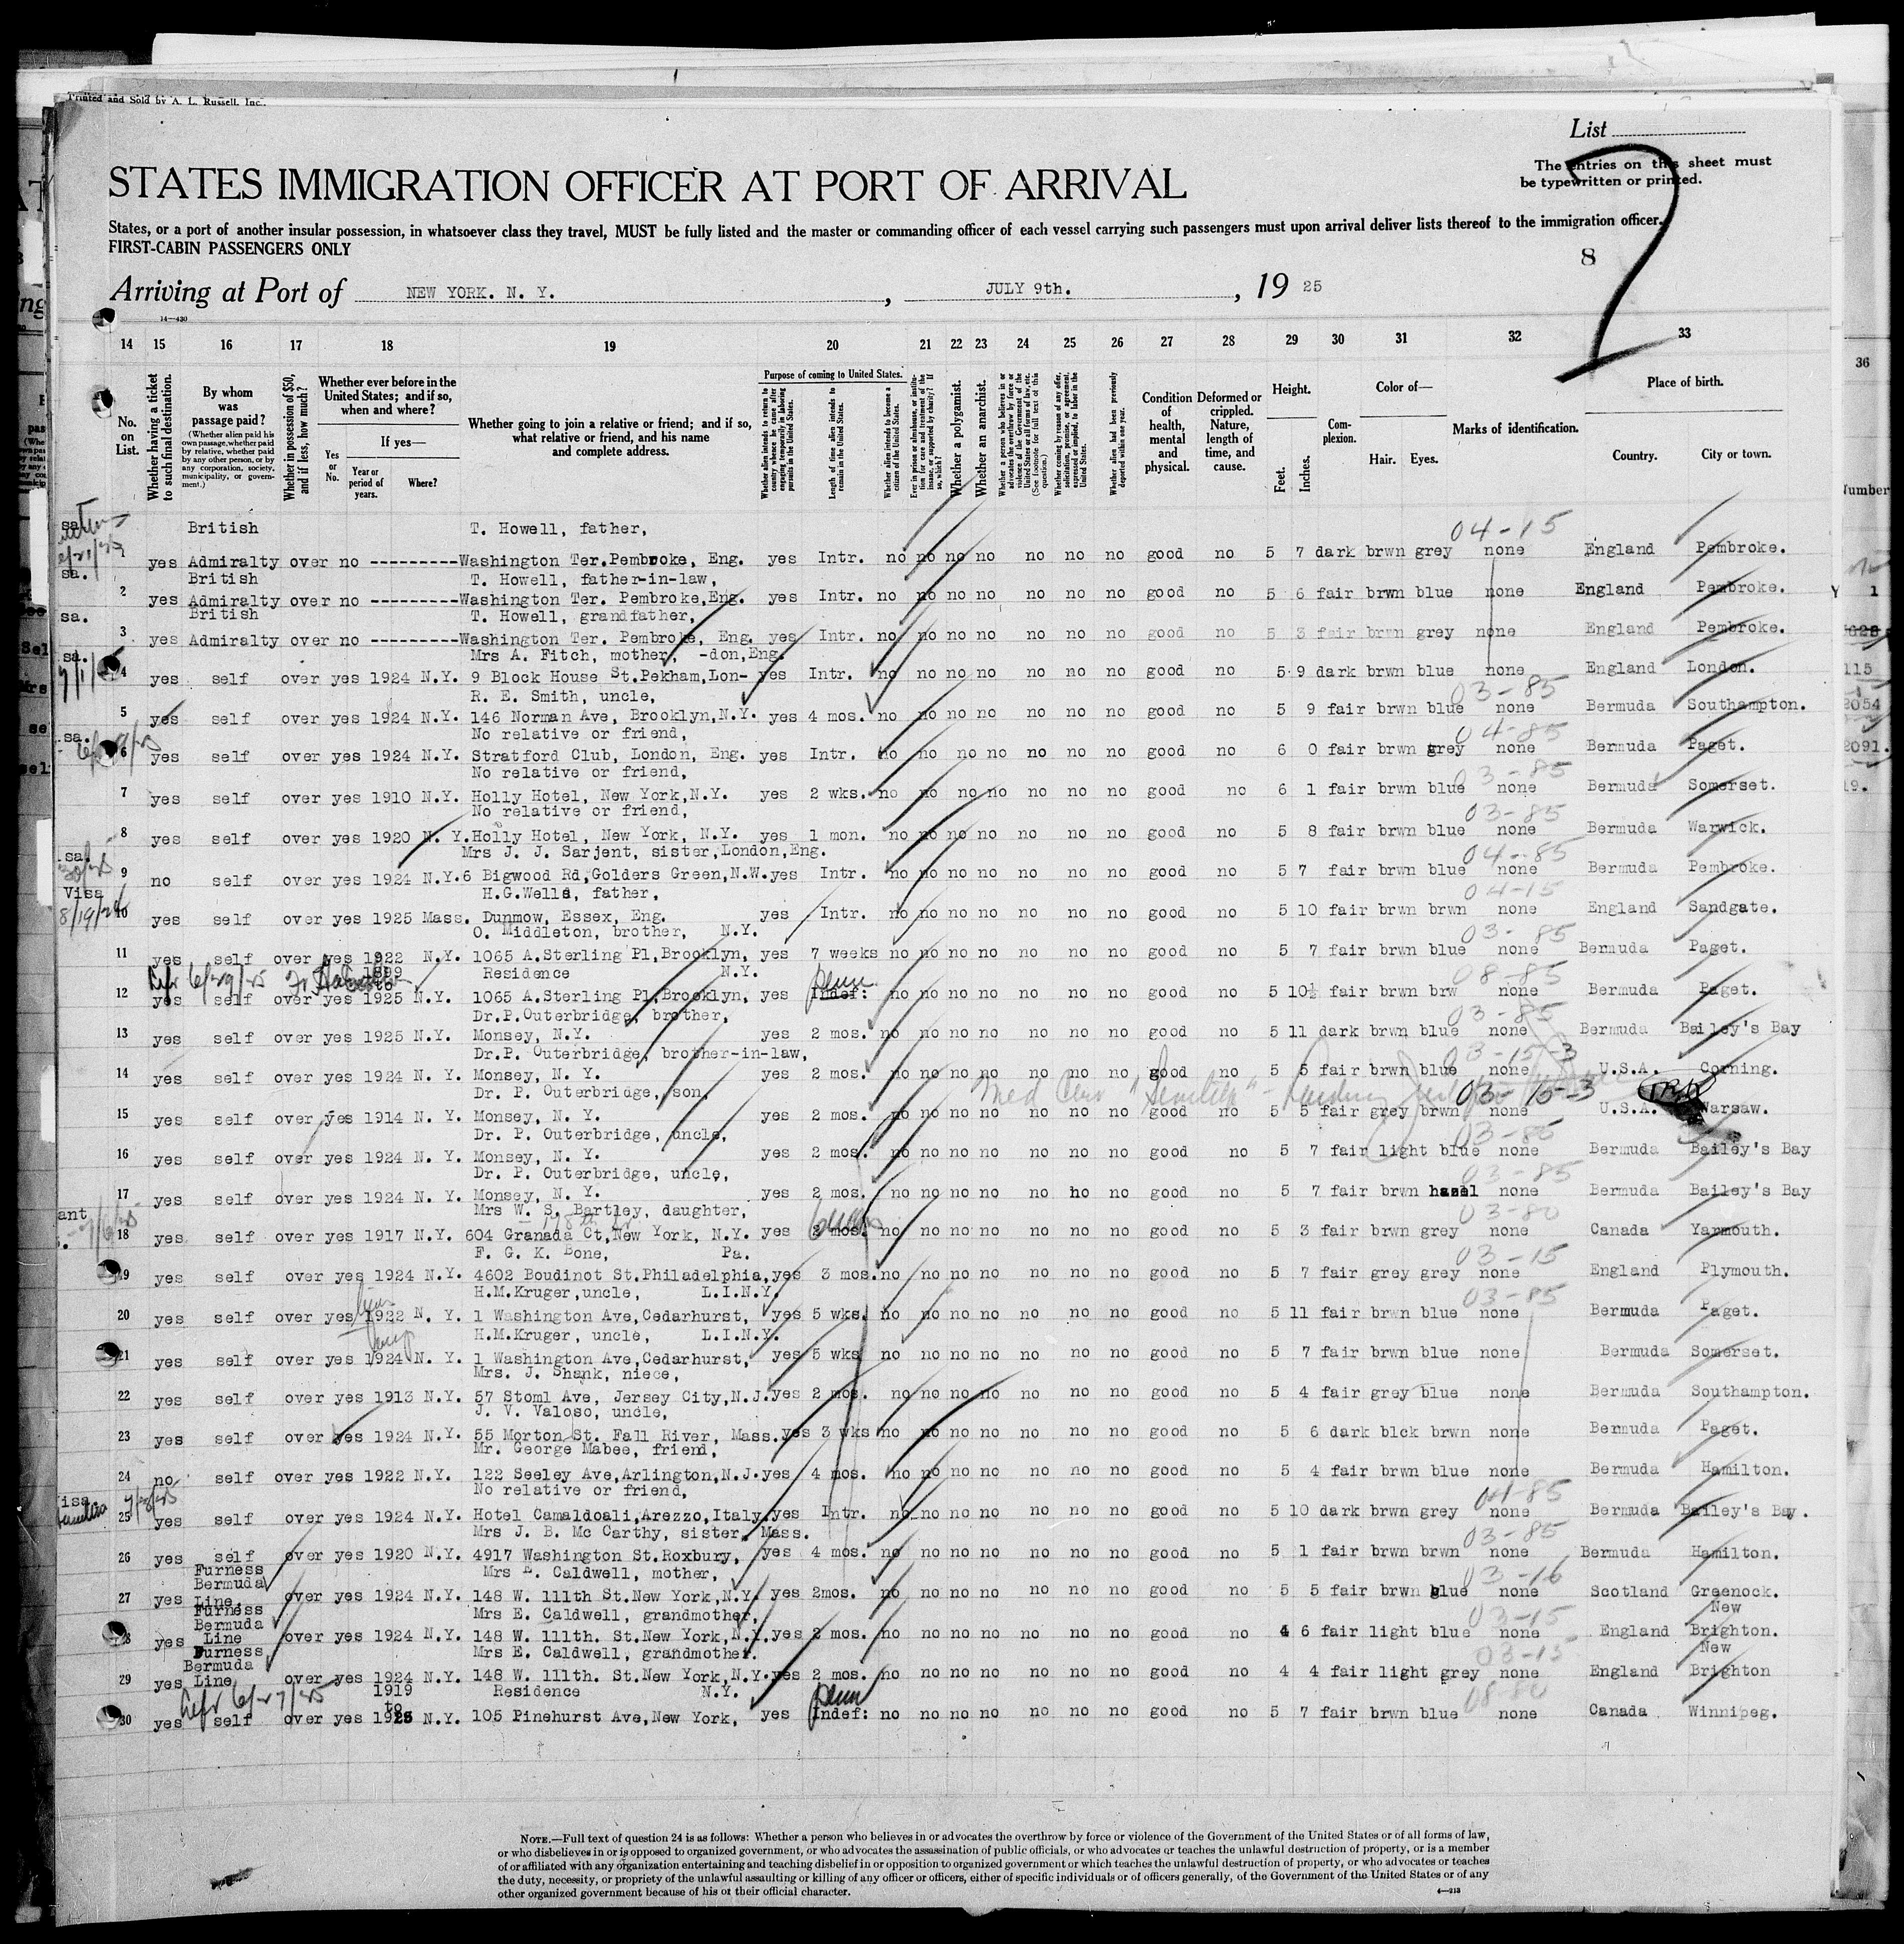 Printed and Sold by A. L. Russell, Inc.
List
The entries on this sheet must
be typewritten or printed.
STATES IMMIGRATION OFFICER AT PORT OF ARRIVAL
States, or a port of another insular possession, in whatsoever class they travel, MUST be fully listed and the master or commanding officer of each vessel carrying such passengers must upon arrival deliver lists thereof to the immigration officer.
FIRST-CABIN PASSENGERS ONLY
8
Arriving at Port of NEW YORK. N. Y. , JULY 9th. , 19 25
14—430
14 15 16 17 18 19 20 21 22 23 24 25 26 27 28 29 30 31 32 33
36
No. on List.
Whether having a ticket to such final destination.
By whom was passage paid?
(Whether alien paid his own passage, whether paid by relative, whether paid by any other person, or by any corporation, society, municipality, or government.)
Whether in possession of $50, and if less, how much?
Whether ever before in the United States; and if so, when and where?
If yes—
Yes or No.
Year or period of years.
Where?
Whether going to join a relative or friend; and if so, what relative or friend, and his name and complete address.
Purpose of coming to United States.
Whether alien intends to return to country whence he came after engaging temporarily in laboring pursuits in the United States.
Length of time alien intends to remain in the United States.
Whether alien intends to become a citizen of the United States.
Ever in prison or almshouse, or institution for care and treatment of the insane, or supported by charity? If so, which?
Whether a polygamist.
Whether an anarchist.
Whether a person who believes in or advocates the overthrow by force or violence of the Government of the United States or all forms of law, etc. (See footnote for full text of this question.)
Whether coming by reason of any offer, solicitation, promise, or agreement, expressed or implied, to labor in the United States.
Whether alien had been previously deported within one year.
Condition of health, mental and physical.
Deformed or crippled. Nature, length of time, and cause.
Height.
Feet.
Inches.
Complexion.
Color of—
Hair. Eyes.
Marks of identification.
Place of birth.
Country. City or town.
British T. Howell, father, 04-15
1 yes Admiralty over no --------- Washington Ter.Pembroke, Eng. yes Intr. no no no no no no no good no 5 7 dark brwn grey none England Pembroke.
British T. Howell, father-in-law,
2 yes Admiralty over no --------- Washington Ter. Pembroke,Eng. yes Intr. no no no no no no no good no 5 6 fair brwn blue none England Pembroke.
British T. Howell, grandfather,
3 yes Admiralty over no --------- Washington Ter. Pembroke, Eng. yes Intr. no no no no no no no good no 5 3 fair brwn grey none England Pembroke.
Mrs A. Fitch, mother, -don,Eng.
4 yes self over yes 1924 N.Y. 9 Block House St.Pekham,Lon- yes Intr. no no no no no no no good no 5 9 dark brwn blue none England London.
R. E. Smith, uncle, 03-85
5 yes self over yes 1924 N.Y. 146 Norman Ave, Brooklyn,N.Y. yes 4 mos. no no no no no no no good no 5 9 fair brwn blue none Bermuda Southampton.
No relative or friend, 04-85
6 yes self over yes 1924 N.Y. Stratford Club, London, Eng. yes Intr. no no no no no no no good no 6 0 fair brwn grey none Bermuda Paget.
No relative or friend, 03-85
7 yes self over yes 1910 N.Y. Holly Hotel, New York,N.Y. yes 2 wks. no no no no no no no good no 6 1 fair brwn blue none Bermuda Somerset.
No relative or friend, 03-85
8 yes self over yes 1920 N. Y. Holly Hotel, New York, N.Y. yes 1 mon. no no no no no no no good no 5 8 fair brwn blue none Bermuda Warwick.
Mrs J. J. Sarjent, sister,London,Eng. 04-85
9 no self over yes 1924 N.Y. 6 Bigwood Rd,Golders Green,N.W. yes Intr. no no no no no no no good no 5 7 fair brwn blue none Bermuda Pembroke.
Visa H.G.Wells, father, 04-15
8/19/24 10 yes self over yes 1925 Mass. Dunmow, Essex, Eng. yes Intr. no no no no no no no good no 5 10 fair brwn brwn none England Sandgate.
O. Middleton, brother, N.Y. 03-85
11 yes self over yes 1922 N.Y. 1065 A.Sterling Pl,Brooklyn, yes 7 weeks no no no no no no no good no 5 7 fair brwn blue none Bermuda Paget.
1899 Residence N.Y. 08-85
to
12 yes self over yes 1925 N.Y. 1065 A.Sterling Pl,Brooklyn, yes Indef: no no no no no no no good no 5 10½ fair brwn brw none Bermuda Paget.
Dr.P.Outerbridge, brother, 03-85
13 yes self over yes 1925 N.Y. Monsey, N.Y. yes 2 mos. no no no no no no no good no 5 11 dark brwn blue none Bermuda Bailey's Bay
Dr.P. Outerbridge, brother-in-law, 03-15-3
14 yes self over yes 1924 N. Y. Monsey, N. Y. yes 2 mos. no no no no no no no good no 5 5 fair brwn blue none U.S.A. Corning.
Dr. P. Outerbridge, son, 03-15-3
15 yes self over yes 1914 N. Y. Monsey, N. Y. yes 2 mos. no no no no no no no good no 5 5 fair grey brwn none U.S.A. Warsaw.
Dr. P. Outerbridge, uncle, 03-85
16 yes self over yes 1924 N. Y. Monsey, N. Y. yes 2 mos. no no no no no no no good no 5 7 fair light blue none Bermuda Bailey's Bay
Dr. P. Outerbridge, uncle, 03-85
17 yes self over yes 1924 N. Y. Monsey, N. Y. yes 2 mos. no no no no no no no good no 5 7 fair brwn hazel none Bermuda Bailey's Bay
Mrs W. S. Bartley, daughter, 03-80
18 yes self over yes 1917 N.Y. 604 Granada Ct,New York, N.Y. yes 2 mos. no no no no no no no good no 5 3 fair brwn grey none Canada Yarmouth.
F. G. K. Bone, Pa. 03-15
19 yes self over yes 1924 N.Y. 4602 Boudinot St.Philadelphia, yes 3 mos. no no no no no no no good no 5 7 fair grey grey none England Plymouth.
H.M.Kruger,uncle, L.I.N.Y. 03-85
20 yes self over yes 1922 N. Y. 1 Washington Ave,Cedarhurst, yes 5 wks. no no no no no no no good no 5 11 fair brwn blue none Bermuda Paget.
H.M.Kruger, uncle, L.I.N.Y.
21 yes self over yes 1924 N. Y. 1 Washington Ave,Cedarhurst, yes 5 wks no no no no no no no good no 5 7 fair brwn blue none Bermuda Somerset.
Mrs. J. Shank, niece,
22 yes self over yes 1913 N.Y. 57 Stoml Ave, Jersey City,N.J. yes 2 mos. no no no no no no no good no 5 4 fair grey blue none Bermuda Southampton.
J. V. Valoso, uncle,
23 yes self over yes 1924 N.Y. 55 Morton St. Fall River, Mass. yes 3 wks no no no no no no no good no 5 6 dark blck brwn none Bermuda Paget.
Mr. George Mabee, friend,
24 no self over yes 1922 N.Y. 122 Seeley Ave,Arlington,N.J. yes 4 mos. no no no no no no no good no 5 4 fair brwn blue none Bermuda Hamilton.
No relative or friend, 04-85
25 yes self over yes 1924 N.Y. Hotel Camaldoali,Arezzo,Italy. yes Intr. no no no no no no no good no 5 10 dark brwn grey none Bermuda Bailey's Bay.
Mrs J. B. Mc Carthy, sister, Mass. 03-85
26 yes self over yes 1920 N.Y. 4917 Washington St.Roxbury, yes 4 mos. no no no no no no no good no 5 1 fair brwn brwn none Bermuda Hamilton.
Furness
Bermuda Mrs E. Caldwell, mother, 03-16
27 yes Line. over yes 1924 N.Y. 148 W. 111th St.New York,N.Y. yes 2mos. no no no no no no no good no 5 5 fair brwn blue none Scotland Greenock.
Furness New
Bermuda Mrs E. Caldwell, grandmother, 03-15
28 yes Line over yes 1924 N.Y. 148 W. 111th. St.New York,N.Y. yes 2 mos. no no no no no no no good no 4 6 fair light blue none England Brighton.
Furness New
Bermuda Mrs E. Caldwell, grandmother. 03-15
29 yes Line over yes 1924 N.Y. 148 W. 111th. St.New York,N.Y. yes 2 mos. no no no no no no no good no 4 4 fair light grey none England Brighton
1919 Residence N.Y. 08-80
to
30 yes self over yes 1925 N.Y. 105 Pinehurst Ave,New York, yes Indef: no no no no no no no good no 5 7 fair brwn blue none Canada Winnipeg.
NOTE.—Full text of question 24 is as follows: Whether a person who believes in or advocates the overthrow by force or violence of the Government of the United States or of all forms of law,
or who disbelieves in or is opposed to organized government, or who advocates the assassination of public officials, or who advocates or teaches the unlawful destruction of property, or is a member
of or affiliated with any organization entertaining and teaching disbelief in or opposition to organized government or which teaches the unlawful destruction of property, or who advocates or teaches
the duty, necessity, or propriety of the unlawful assaulting or killing of any officer or officers, either of specific individuals or of officers generally, of the Government of the United States or of any
other organized government because of his or their official character.